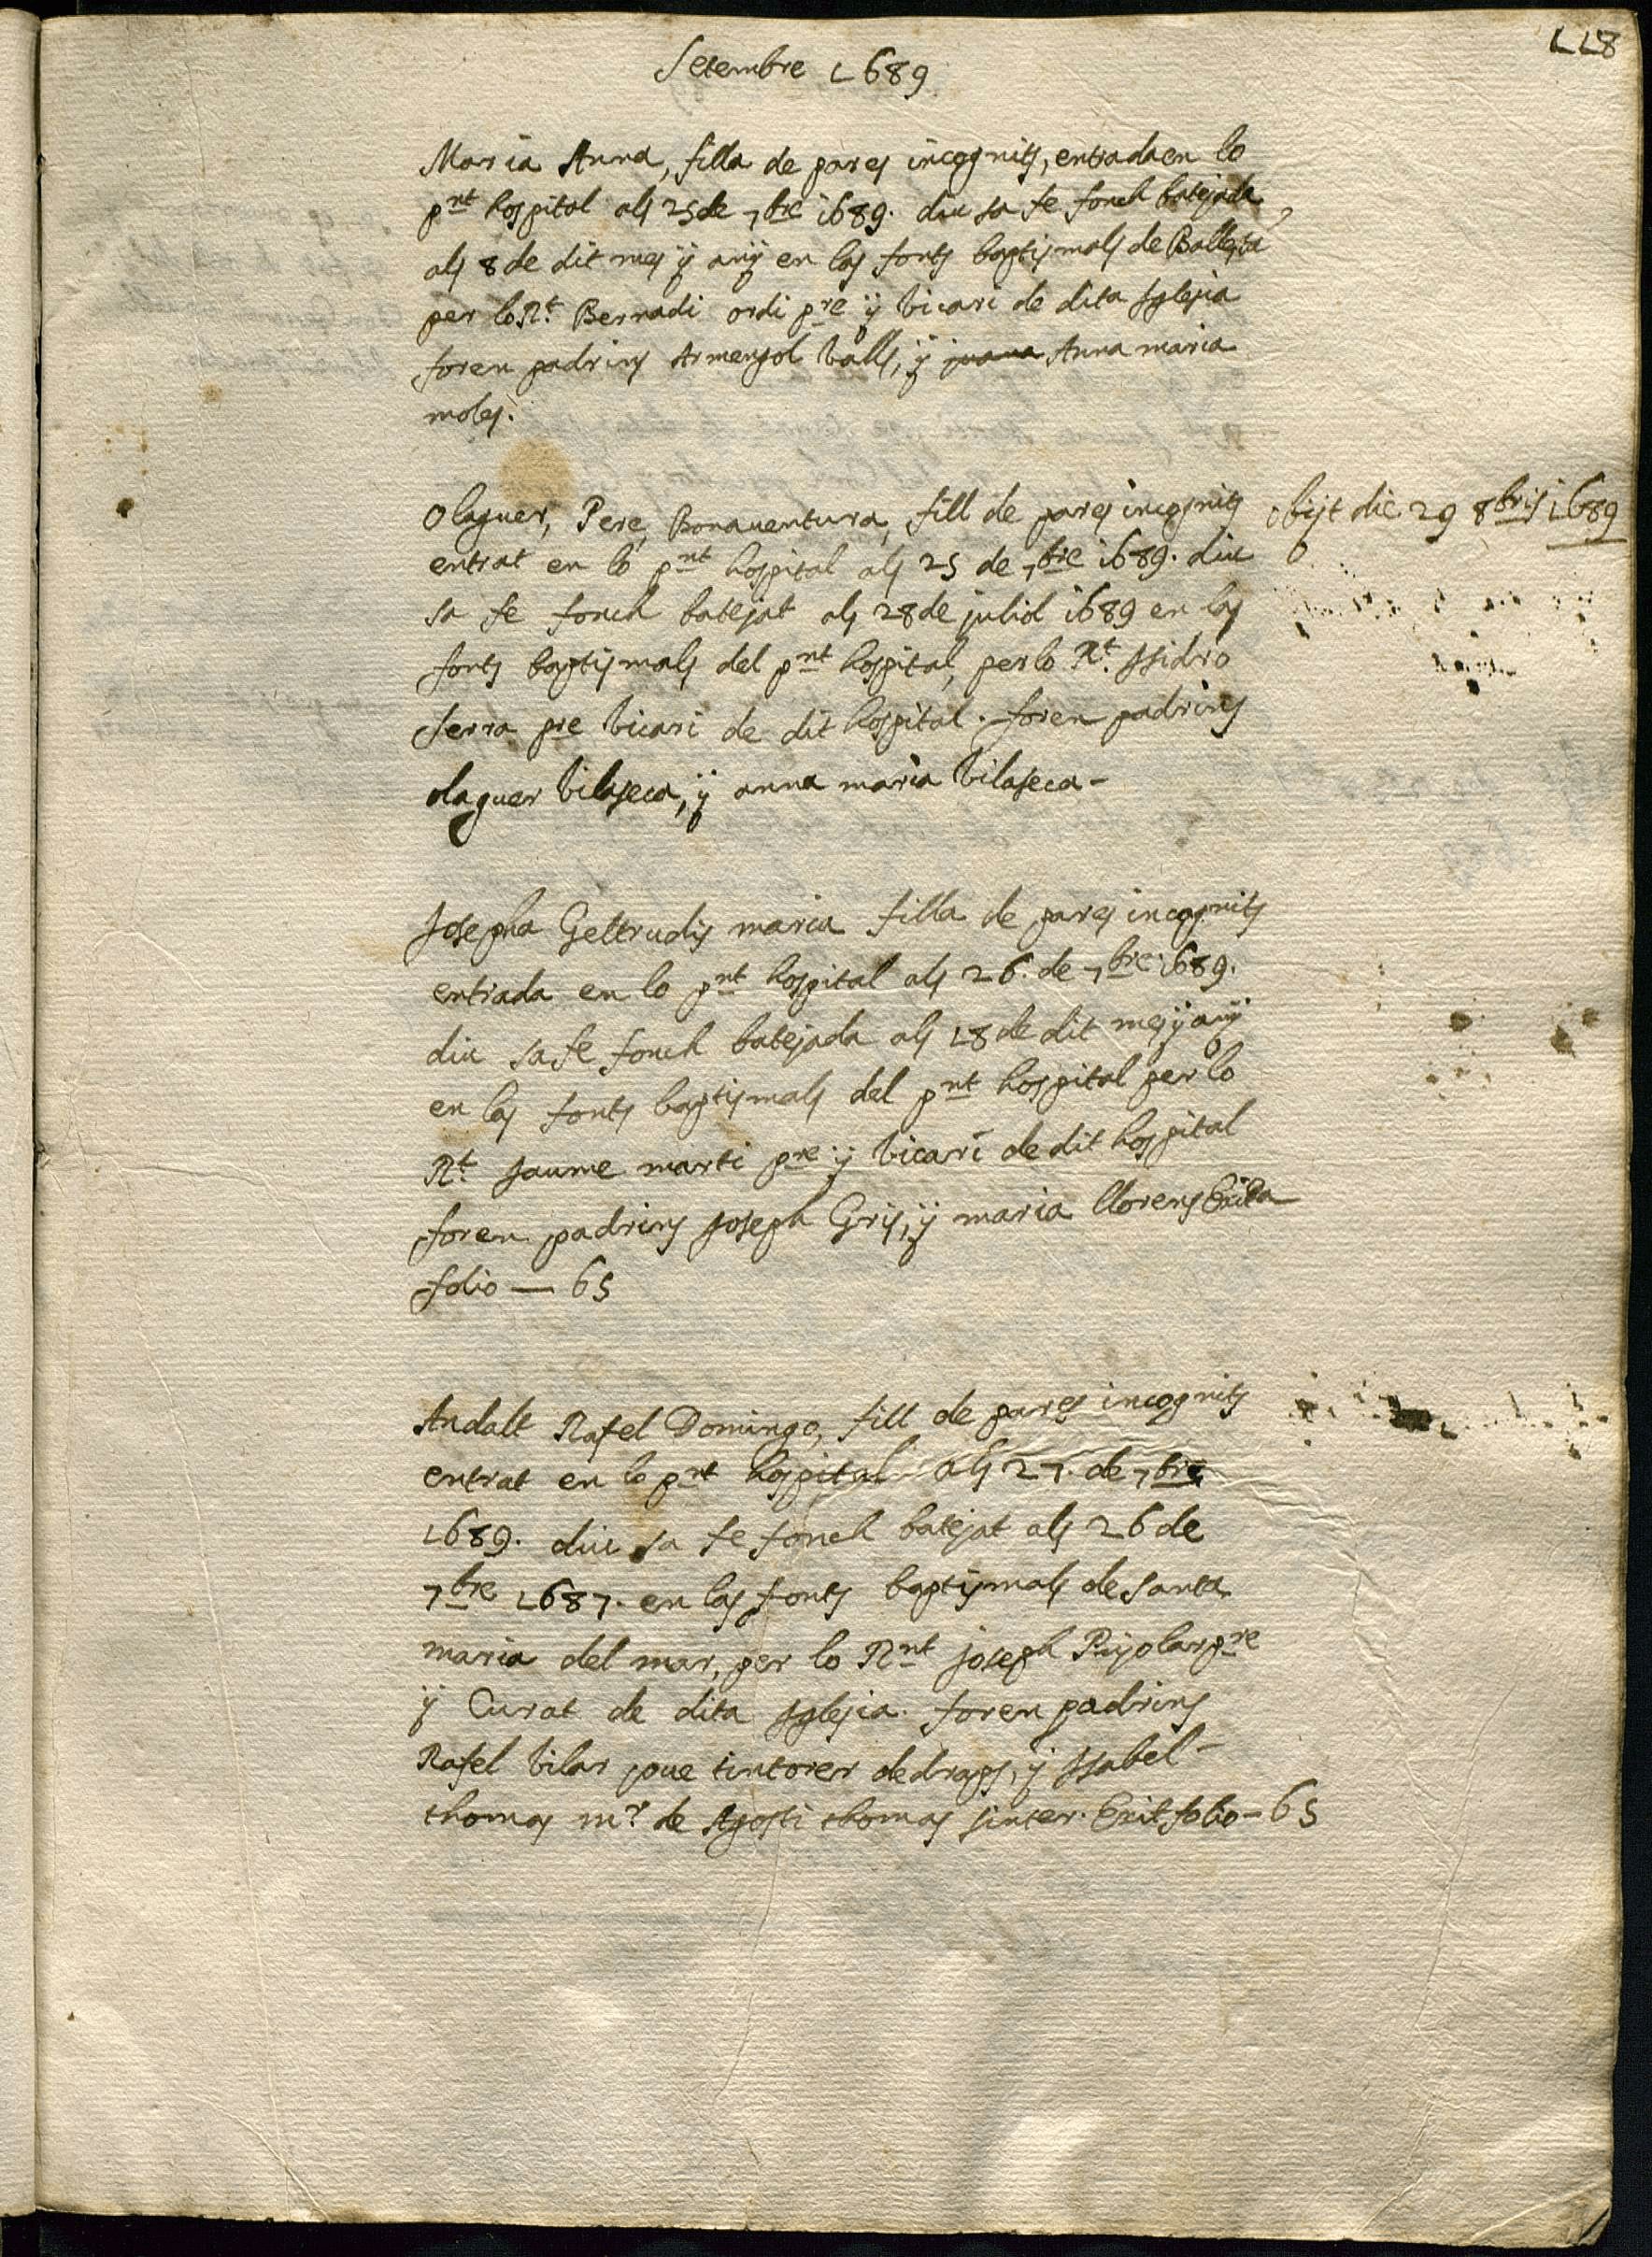 118
Setembre 1689
Maria Anna, filla de pares incognits, entrada en lo
pnt hospital als 25 de 7bre 1689. diu sa fe fonch batejada
als 8 de dit mes ÿ anÿ en las fonts baptismals de Ballesta
per lo Rt Bernadi ordi pre ÿ vicari de dita Iglesia
foren padrins Armengol valls, ÿ juana Anna maria
moles.
Olaguer, Pere, Bonauentura, fill de pares incognits
obijt die 29 8bris 1689
entrat en lo pnt hospital als 25 de 7bre 1689. diu
sa fe fonch batejat als 28 de juliol 1689 en las
fonts baptismals del pnt hospital, per lo Rt Issidro
serra pre vicari de dit hospital. foren padrins
olaguer vilaseca, ÿ anna maria vilaseca-
Josepha Geltrudis maria filla de pares incognits
entrada en lo pnt hospital als 26. de 7bre 1689.
diu sa fe fonch batejada als 18 de dit mes ÿ anÿ
en las fonts baptismals del pnt hospital per lo
Rt Jaume marti pre ÿ vicari de dit hospital
foren padrins Joseph Gris, ÿ maria llorens
folio — 65
Andalt Rafel Domingo, fill de pares incognits
entrat en lo pnt hospital als 27. de 7bre
1689. diu sa fe fonch batejat als 26 de
7bre 1687. en las fonts baptismals de santa
maria del mar, per lo Rnt joseph Pujolar pre
ÿ Curat de dita Iglesia. foren padrins
Rafel vilar joue tintorer de draps, ÿ Isabel-
thomas mr de Agosti thomas sinter. Exit folio - 65